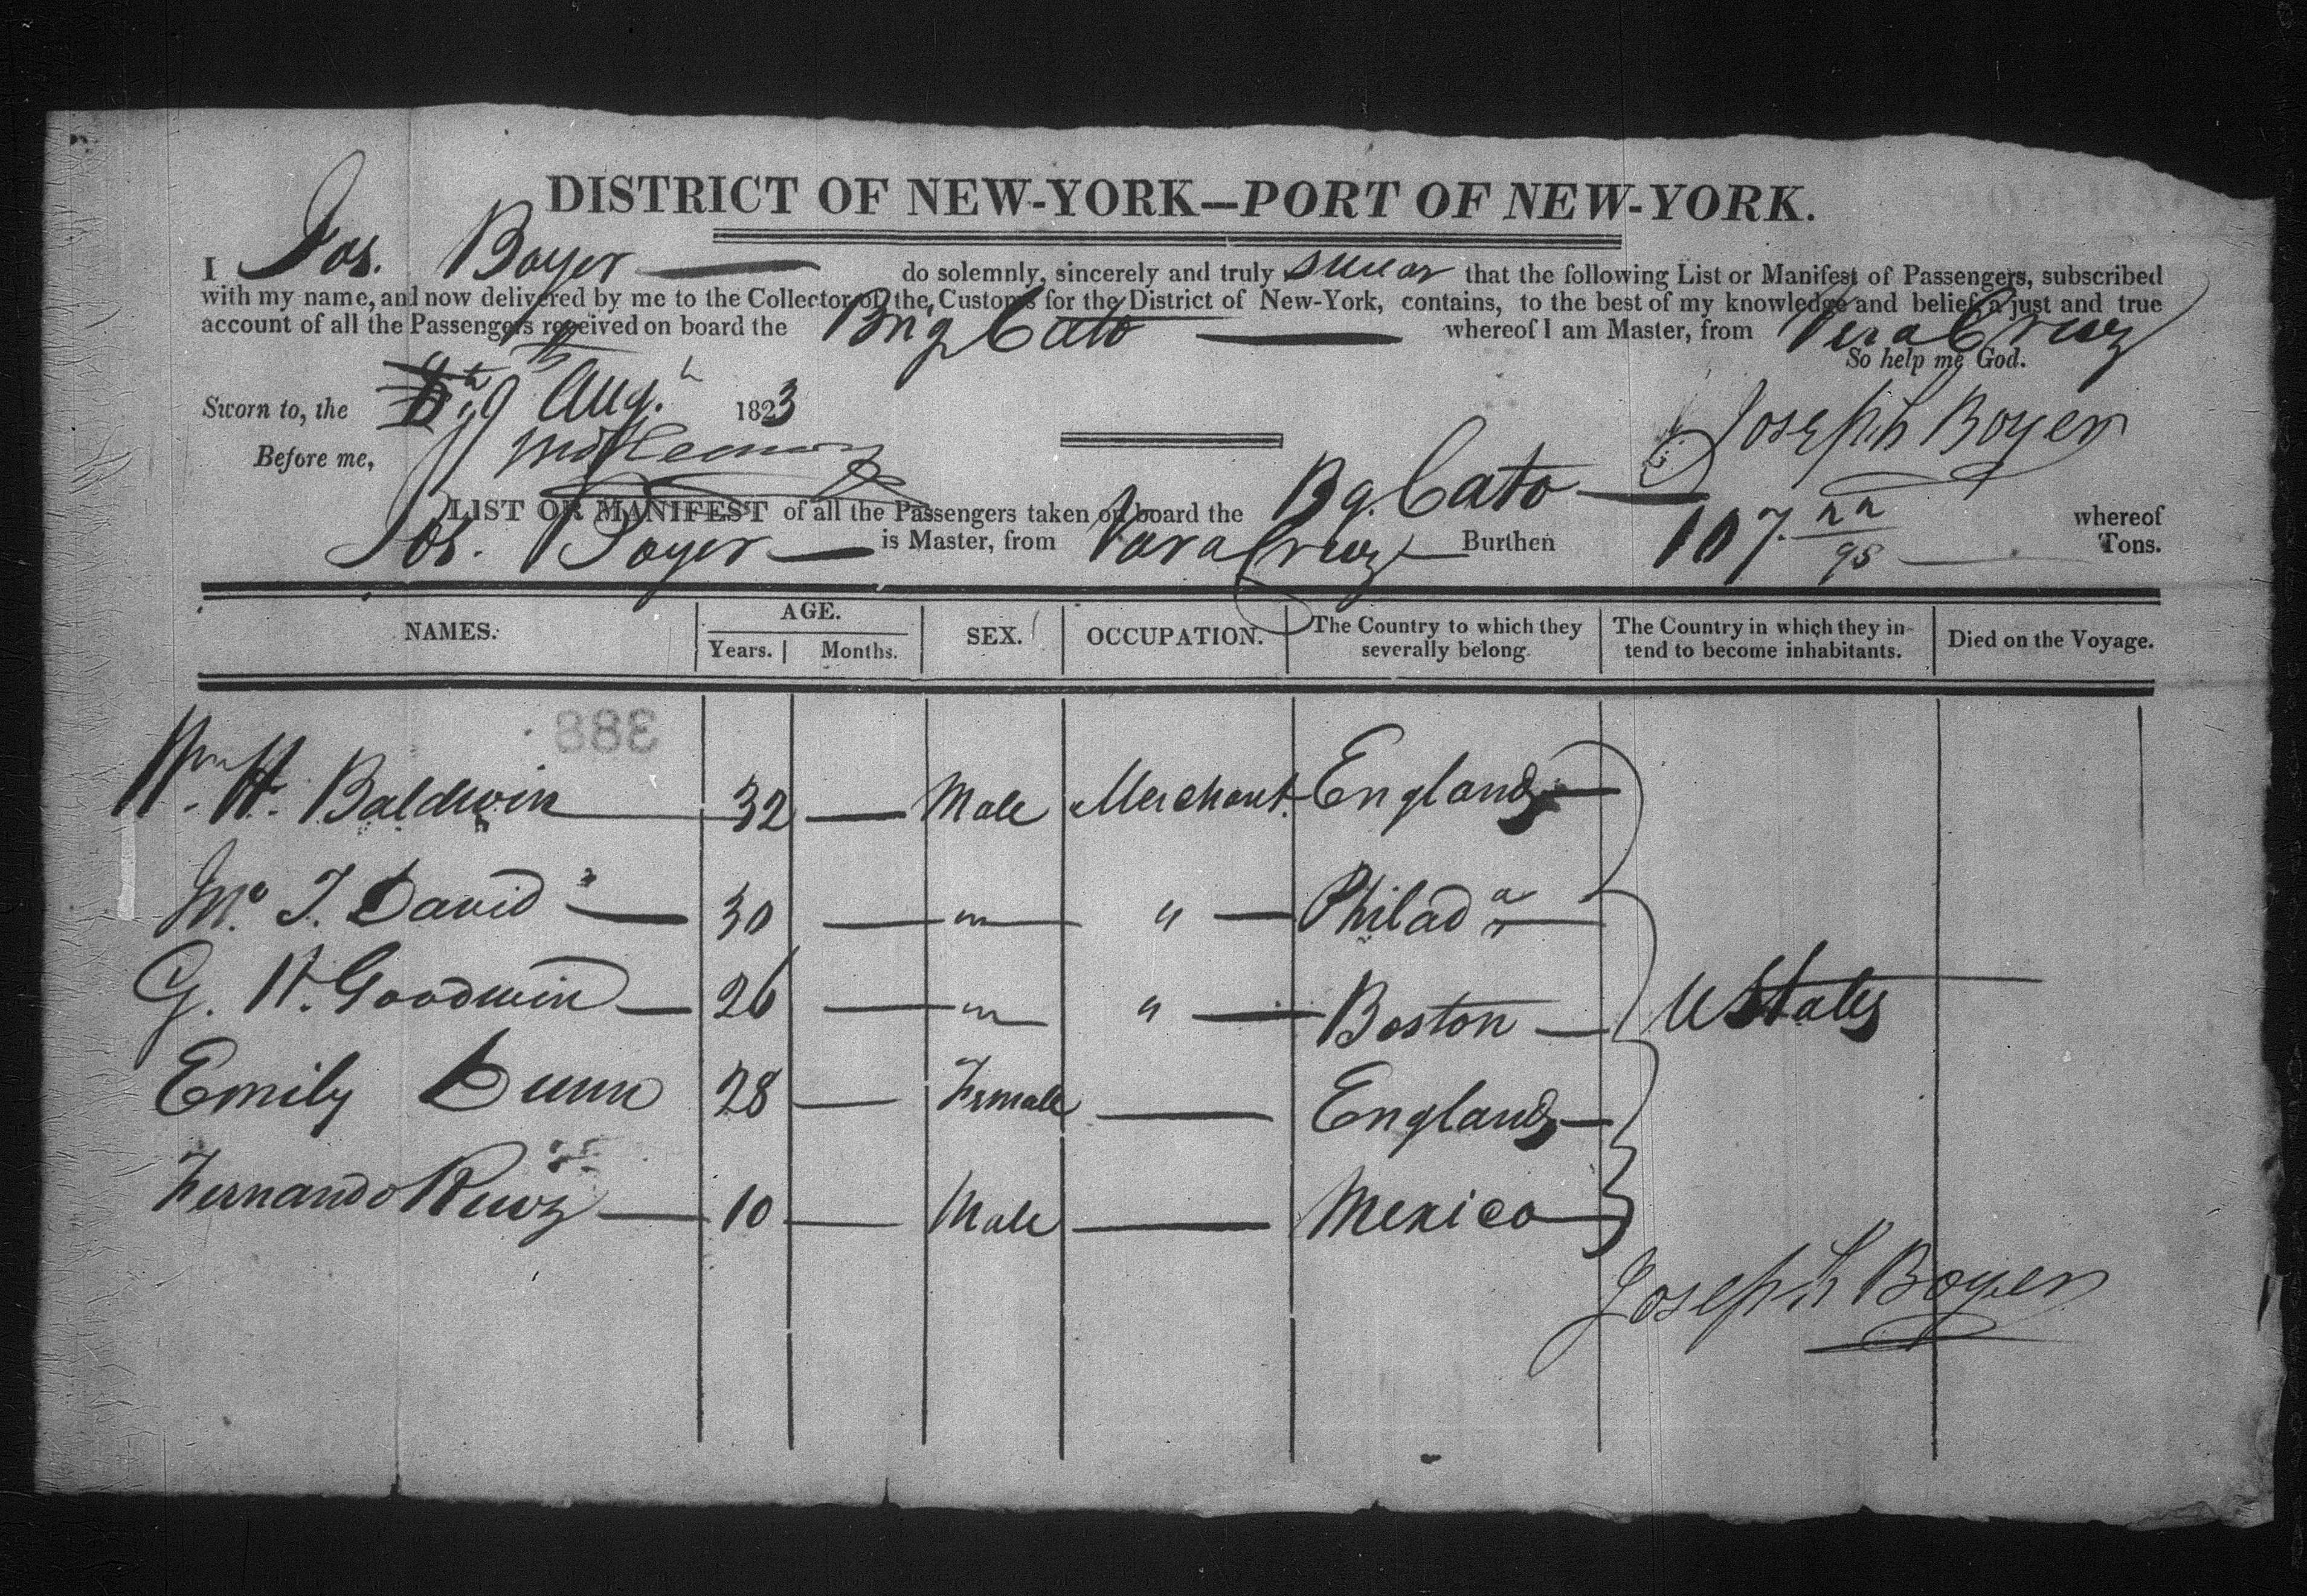 DISTRICT OF NEW-YORK—PORT OF NEW-YORK.
I Jos. Boyer do solemnly, sincerely and truly swear that the following List or Manifest of Passengers, subscribed
with my name, and now delivered by me to the Collector of the Customs for the District of New-York, contains, to the best of my knowledge and belief, a just and true
account of all the Passengers received on board the Brig Cato whereof I am Master, from Vera Cruz
So help me God.
Sworn to, the 9th Augt 1823
Joseph Boyer
Before me,
LIST OR MANIFEST of all the Passengers taken on board the Bg. Cato whereof
Jos. Boyer is Master, from Vera Cruz Burthen 107 22/95 Tons.
NAMES. AGE. Years. Months. SEX. OCCUPATION. The Country to which they severally belong. The Country in which they intend to become inhabitants. Died on the Voyage.
388
Wm H. Baldwin 32 — Male Merchant. England
J. David 30 — " " Philada
G. W. Goodwin 26 — " " Boston U States
Emily Dunn 28 — Female — England
Fernando Ruiz 10 — Male — Mexico
Joseph Boyer